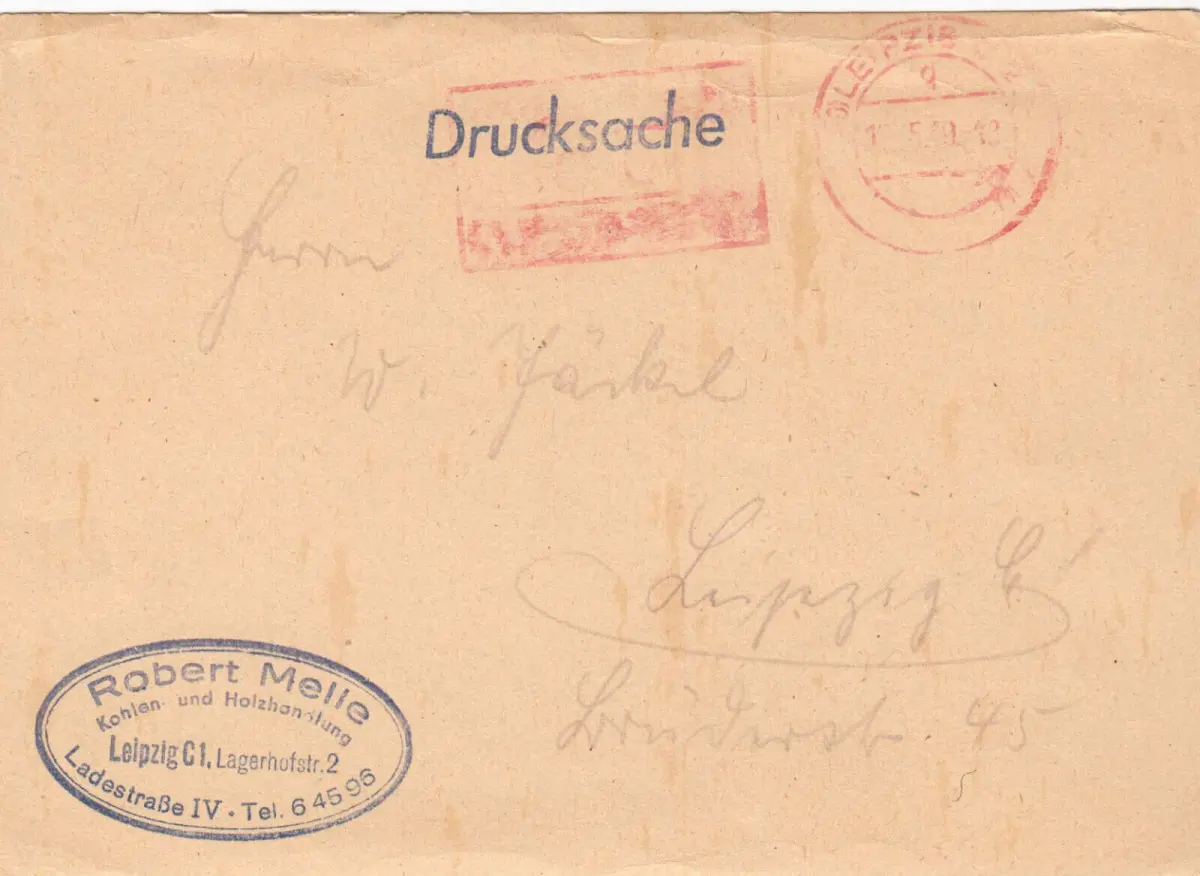 Drucksache
LEIPZIG
Herrn
W. Jäckel
Leipzig C1
Brüderstr. 45
Robert Melle
Kohlen- und Holzhandlung
Leipzig C1, Lagerhofstr. 2
Ladestraße IV · Tel. 6 45 96